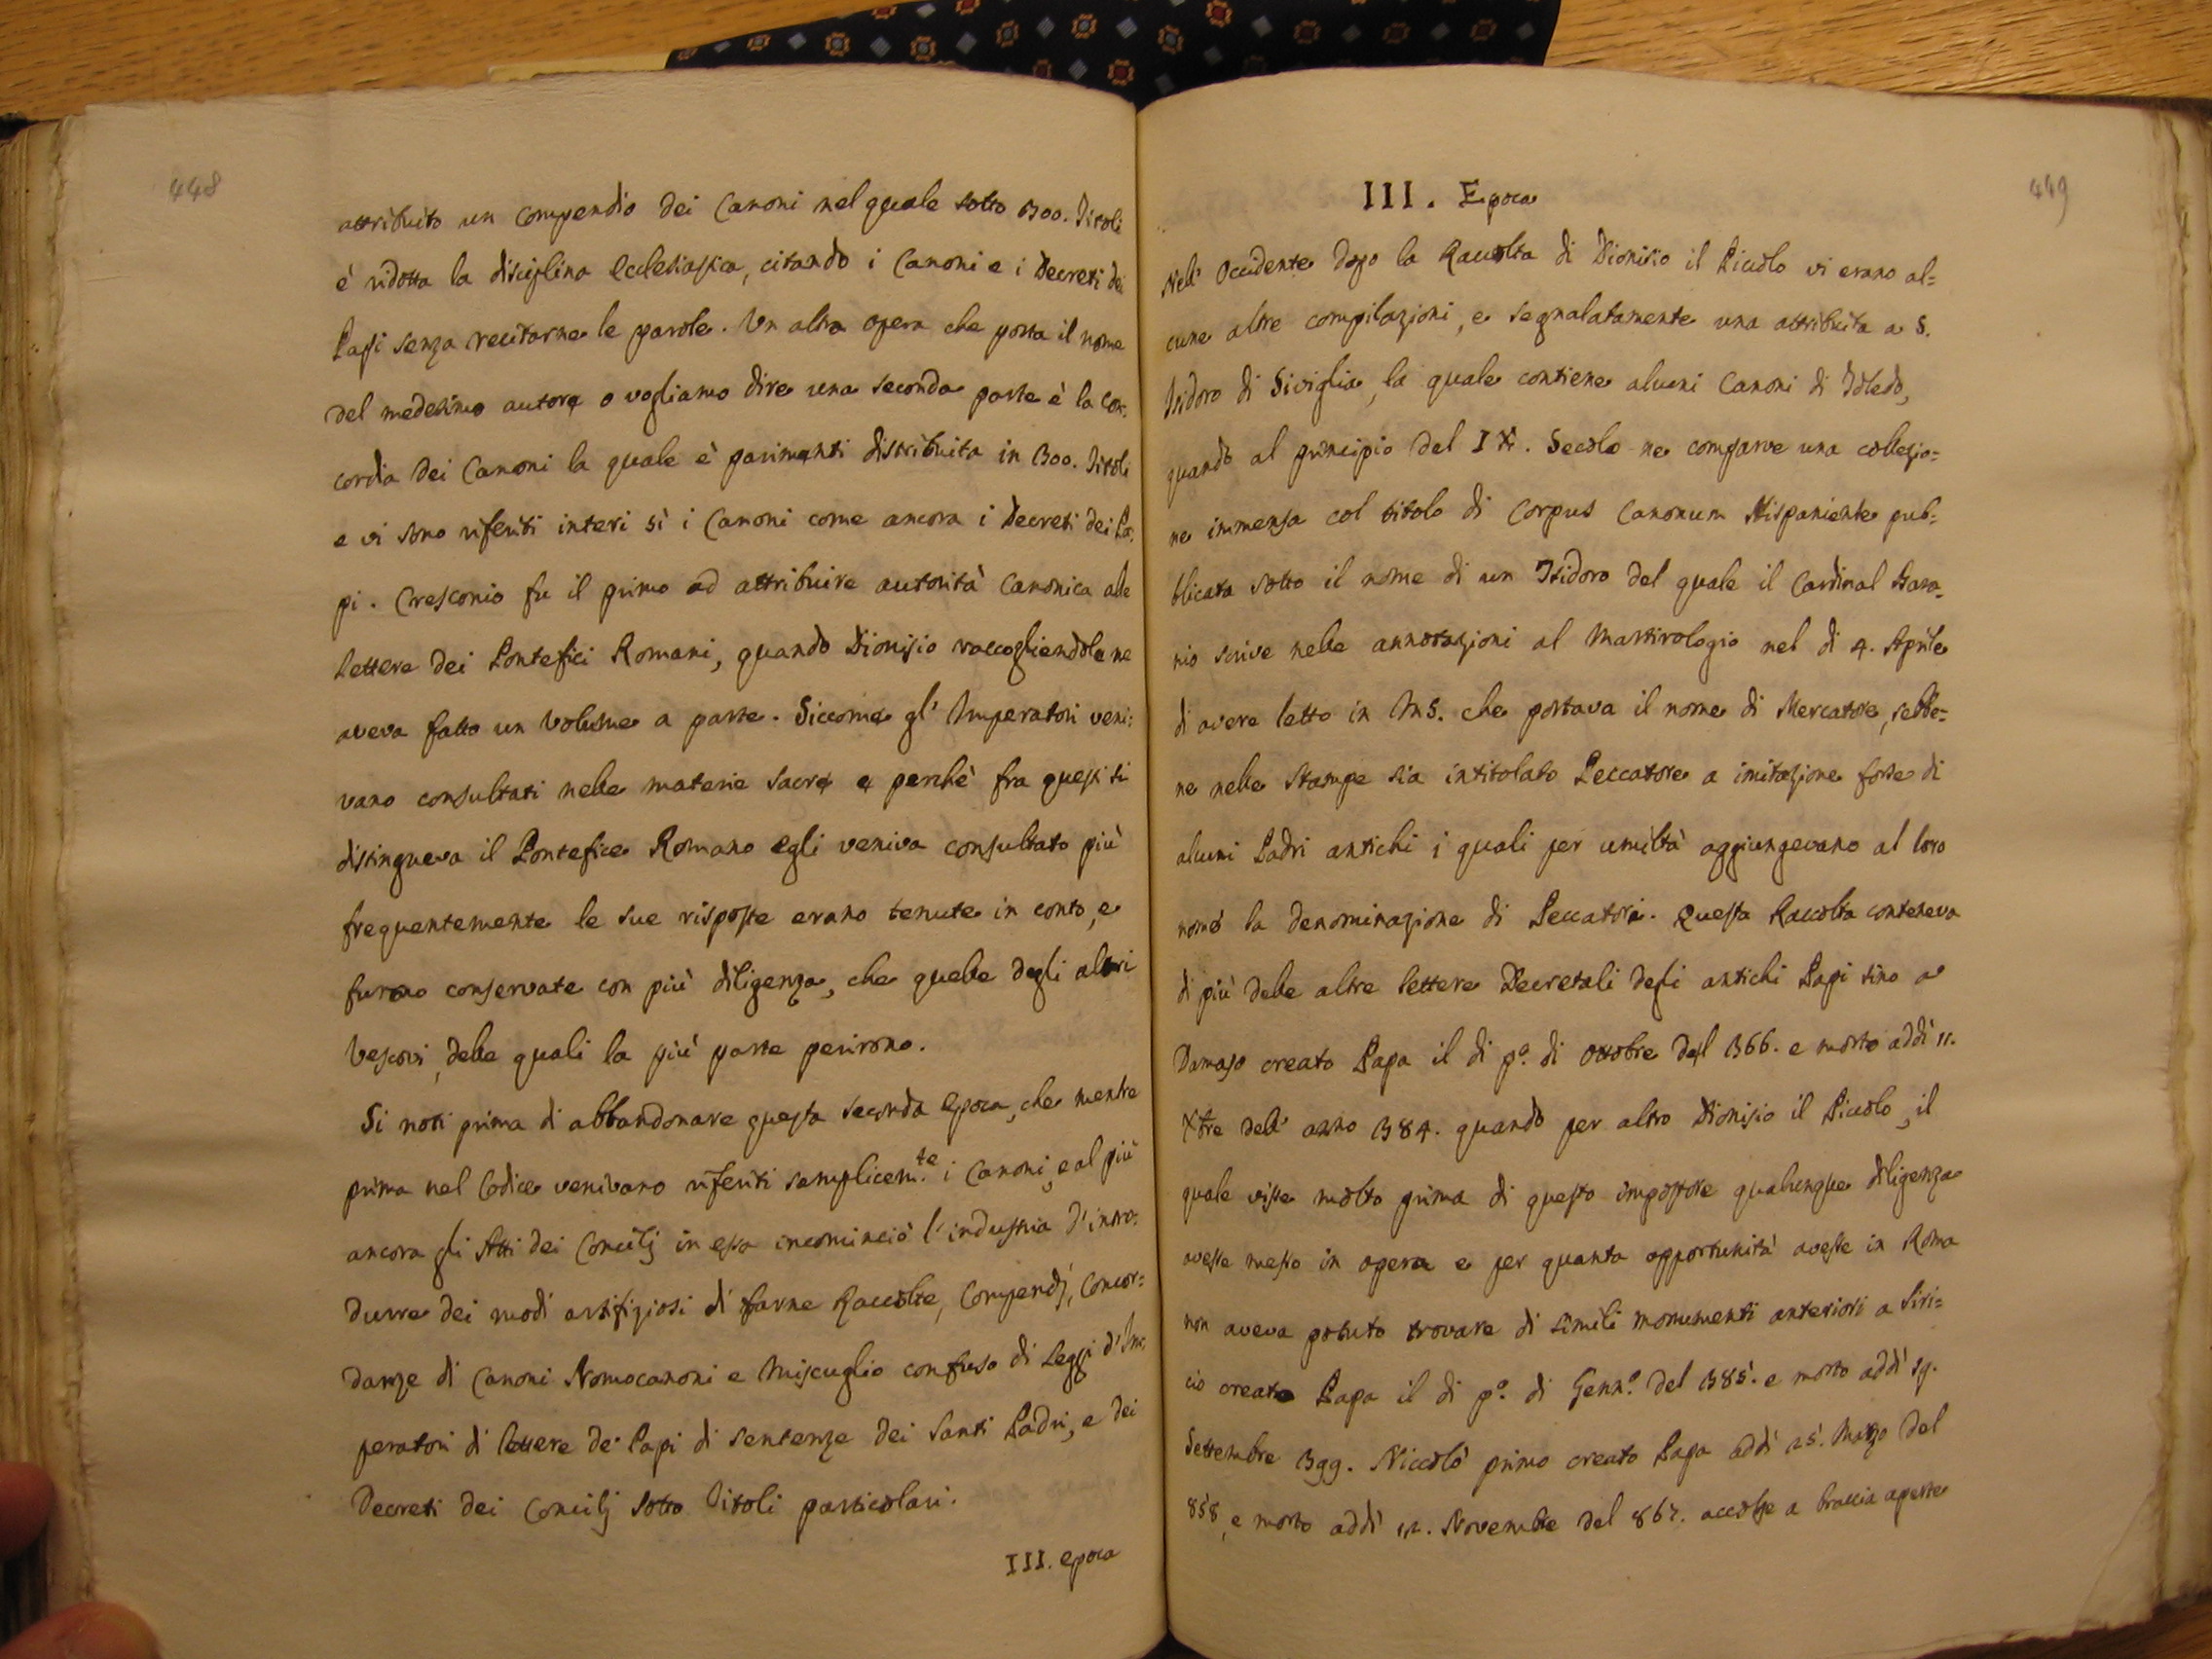 448
attribuito un compendio dei Canoni nel quale sotto 300. Titoli
è ridotta la disciplina Ecclesiastica, citando i Canoni e i Decreti dei
Papi senza recitarne le parole. Un altra opera che porta il nome
del medesimo autore o vogliamo dire una seconda parte è la Con-
cordia dei Canoni la quale è parimenti distribuita in 300. Titoli
e vi sono riferiti interi sì i Canoni come ancora i Decreti dei Pa-
pi. Cresconio fu il primo ad attribuire autorità Canonica alle
lettere dei Pontefici Romani, quando Dionisio raccogliendole ne
aveva fatto un Volume a parte. Siccome gl' Imperatori veni-
vano consultati nelle materie sacre e perchè fra questi si
distingueva il Pontefice Romano egli veniva consultato più
frequentemente le sue risposte erano tenute in conto, e
furono conservate con più diligenza, che quelle degli altri
Vescovi, delle quali la più parte perirono.
Si noti prima di abbandonare questa seconda epoca, che mentre
prima nel Codice venivano riferiti semplicem.te i Canoni, e al più
ancora gli Atti dei Concilj in essa incominciò l'industria d'intro-
durre dei modi artifiziosi di farne Raccolte, Compendj, Concor=
danze di Canoni Nomocanoni e Miscuglio confuso di Leggi d'Im-
peratori di lettere de' Papi di sentenze dei Santi Padri, e dei
Decreti dei Concilj sotto Titoli particolari.
III. epoca
449
III. Epoca
Nell' Occidente dopo la Raccolta di Dionisio il Piccolo vi erano al=
cune altre compilazioni, e segnalatamente una attribuita a S.
Isidoro di Siviglia, la quale contiene alcuni Canoni di Toledo,
quando al principio del IX. Secolo ne comparve una collezio=
ne immensa col titolo di Corpus Canonum Hispaniente pub-
blicata sotto il nome di un Isidoro del quale il Cardinal Baro-
nio scrive nelle annotazioni al Martirologio nel dì 4. Aprile
di avere letto in MS. che portava il nome di Mercatore, sebbe=
ne nelle Stampe sia intitolato Peccatore a imitazione forse di
alcuni Padri antichi i quali per umiltà aggiungevano al loro
nome la denominazione di Peccatori. Questa Raccolta conteneva
di più delle altre lettere Decretali degli antichi Papi sino a
Damaso creato Papa il dì p.o di Ottobre del 366. e morto addì 11.
Xbre dell' anno 384. quando per altro Dionisio il Piccolo, il
quale visse molto prima di questo impostore qualunque diligenza
avesse messo in opera e per quanta opportunità avesse in Roma
non aveva potuto trovare di simili monumenti anteriori a Siri=
cio creato Papa il dì p.o di Genn.o del 385. e morto addì
Settembre 399. Niccolò primo creato Papa addì 25. Marzo del
858, e morto addì 12. Novembre del 867. accolse a braccia aperte